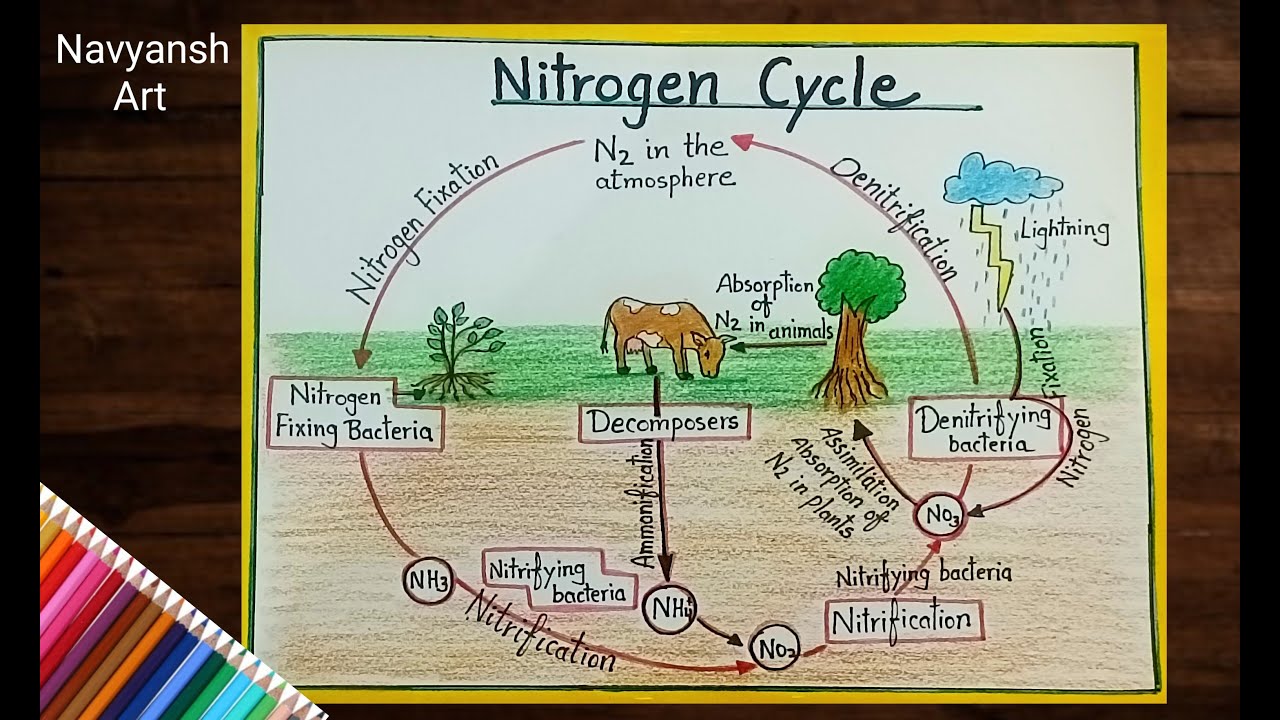 Navyansh
Art
Nitrogen Cycle
N2 in the
atmosphere
Nitrogen Fixation
Denitrification
Lightning
Absorption
of
N2 in animals
Nitrogen
Fixing Bacteria
Decomposers
Denitrifying
bacteria
Nitrogen Fixation
Ammonification
Assimilation
Absorption of
N2 in plants
NO3
NH3
Nitrifying
bacteria
NH4+
Nitrifying bacteria
Nitrification
Nitrification
NO2